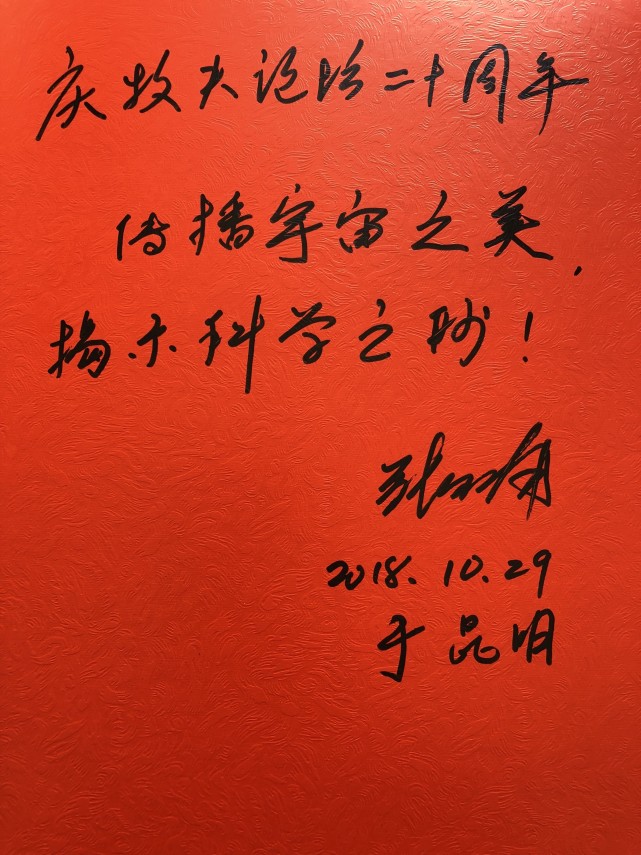 庆牧夫论坛二十周年
传播宇宙之美,
揭示科学之妙!
2018.10.29
于昆明